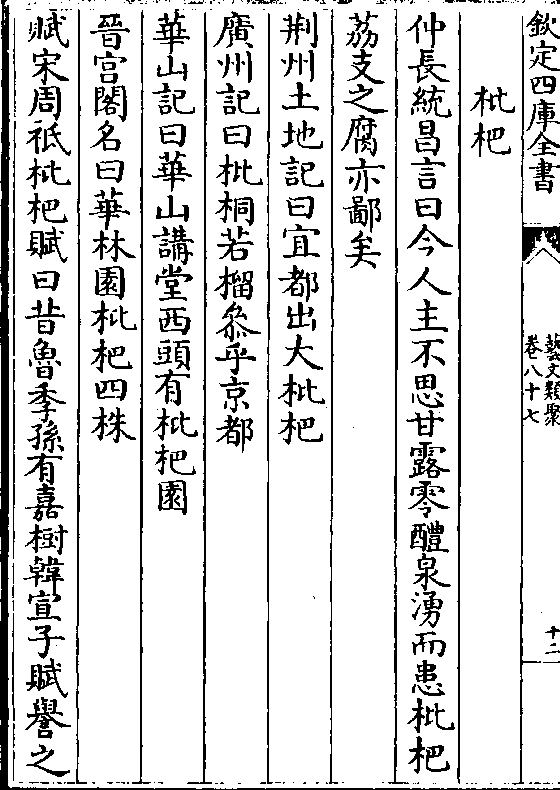 欽定四庫全書
藝文類聚
卷八十七
十二
枇杷
仲長統昌言曰今人主不思甘露零醴泉湧而患枇杷
荔支之腐亦鄙矣
荆州土地記曰宜都出大枇杷
廣州記曰枇桐若榴叅乎京都
華山記曰華山講堂西頭有枇杷園
晉宫閣名曰華林園枇杷四株
賦宋周祇枇杷賦曰昔魯季孫有嘉樹韓宣子賦譽之